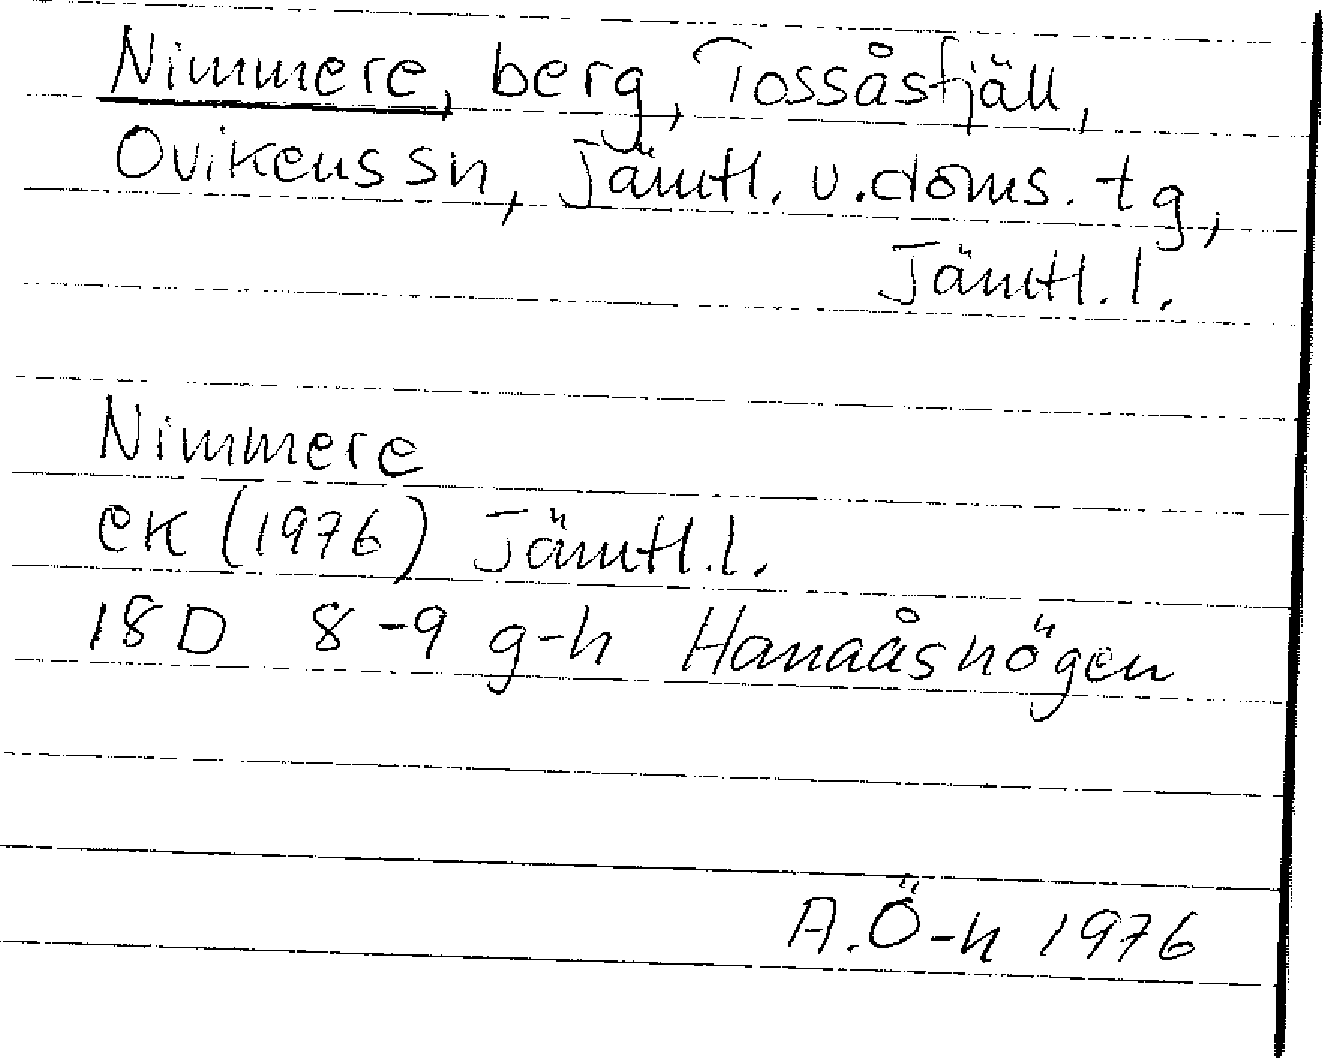 Nimmere, berg, Tossåsfjäll,
Ovikens sn, Jämtl. v.doms. tg,
Jämtl. l.
Nimmere
ek (1976) Jämtl. l.
18D 8-9 g-h Hanaåsnögen
A.Ö-n 1976